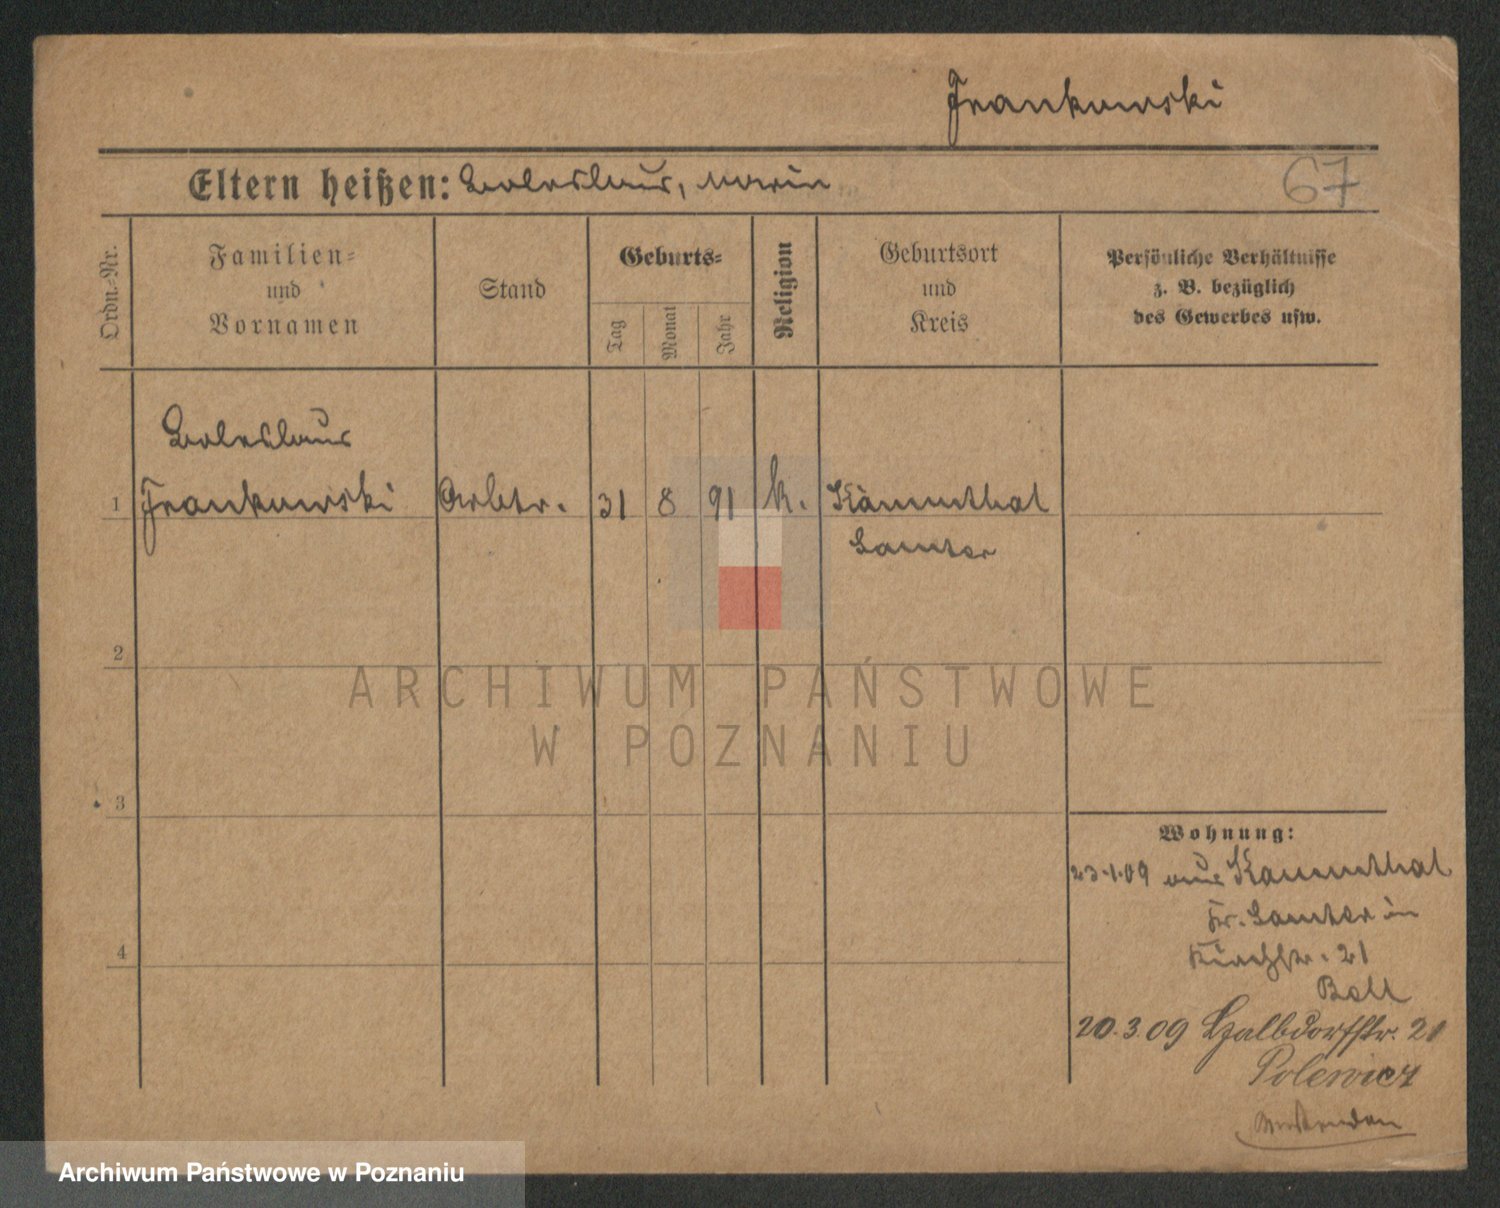 Frankowski
Eltern heißen: Boleslaus, Maria
67
Ordn.-Nr.
Familien-
und
Vornamen
Stand
Geburts-
Tag
Monat
Jahr
Religion
Geburtsort
und
Kreis
Persönliche Verhältnisse
z. B. bezüglich
des Gewerbes usw.
Boleslaus
1 Frankowski Arbtr. 31 8 91 k. Kämmthal
Samter
2
ARCHIWUM PAŃSTWOWE
W POZNANIU
3
Wohnung:
23.1.09 aus Kammthal
Kr. Samter in
Kirchstr. 21
Boll
4
20.3.09 Halbdorfstr. 21
Polewicz
Archiwum Państwowe w Poznaniu